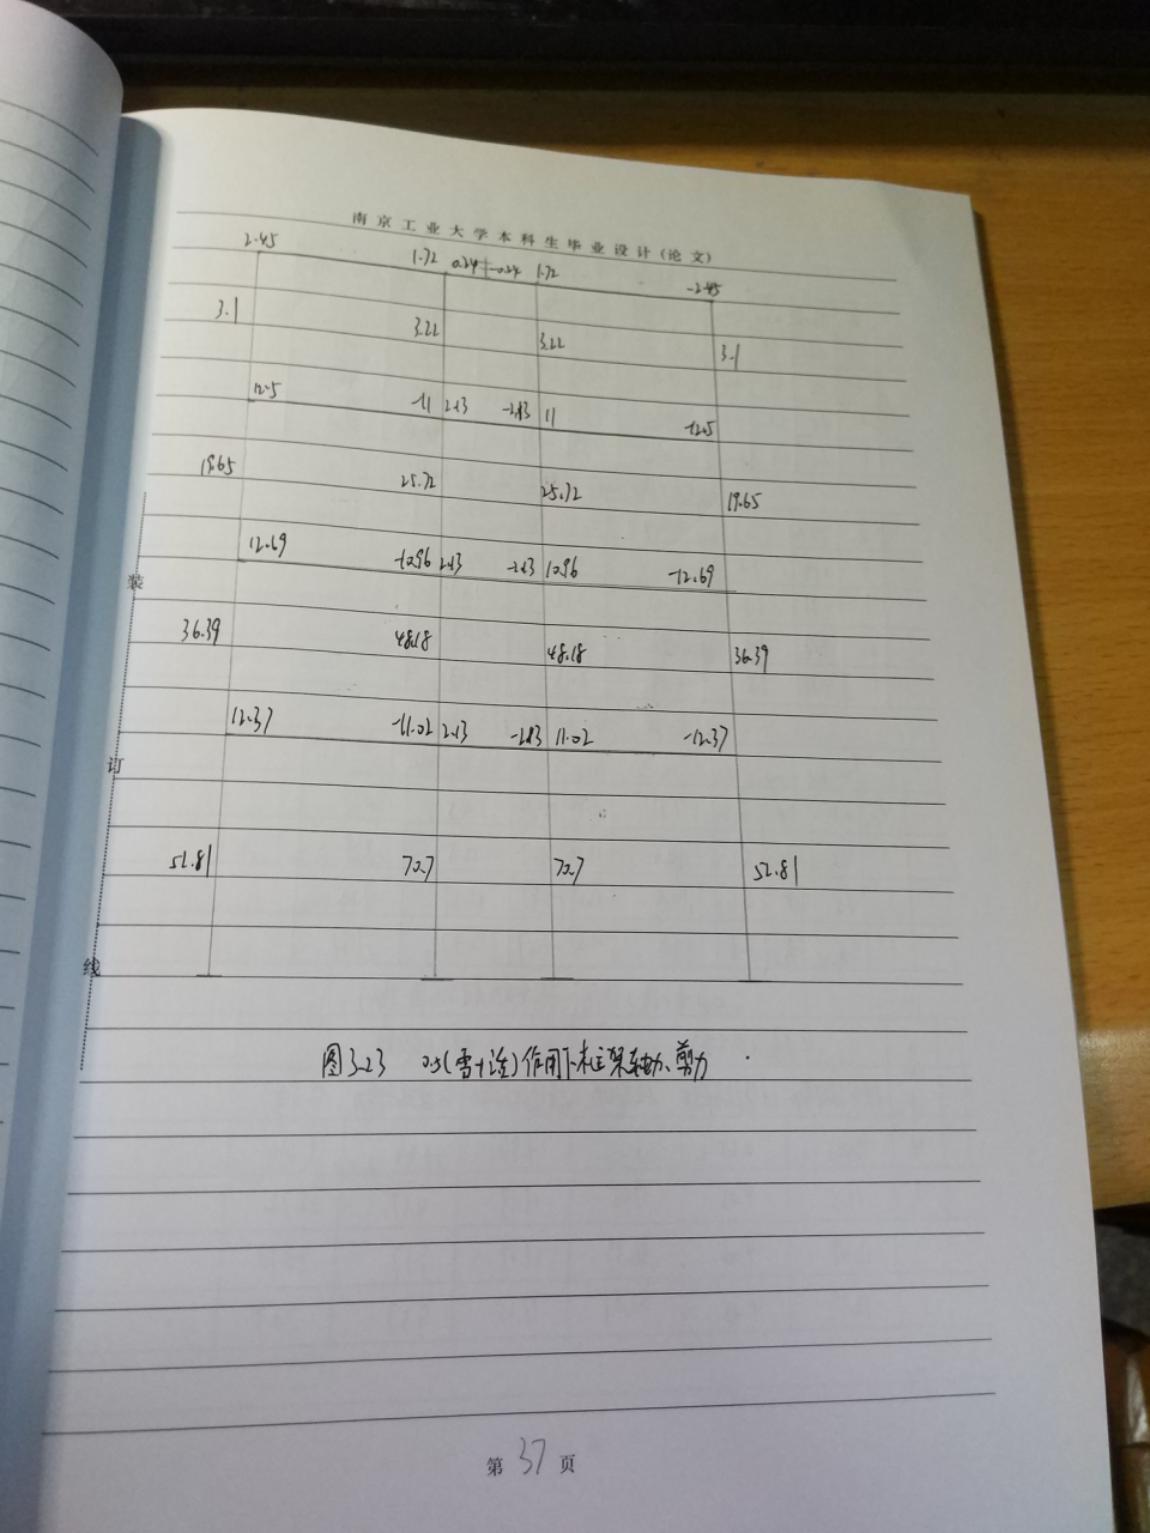 南京工业大学本科生毕业设计(论文)
2.45 1.72 0.24 -0.24 1.72 -2.45
3.1 3.22 3.22 3.1
12.5 -11 2.13 -2.13 11 -12.5
19.65 25.72 25.72 19.65
12.69 -10.96 2.13 -2.13 10.96 -12.69
装
36.39 48.18 48.18 36.39
12.37 -11.02 2.13 -2.13 11.02 -12.37
订
52.81 70.7 70.7 52.81
线
图3.23 0.5(雪+活)作用下框架轴力、剪力
第37页